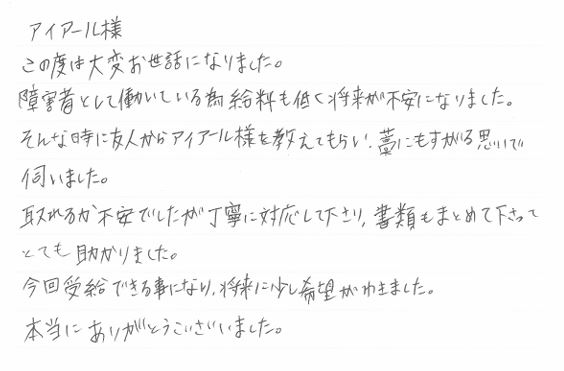 アイアール様
この度は大変お世話になりました。
障害者として働いている為給料も低く将来が不安になりました。
そんな時に友人からアイアール様を教えてもらい、藁にもすがる思いで
伺いました。
取れるか不安でしたが丁寧に対応して下さり、書類もまとめて下さって
とても助かりました。
今回受給できる事になり、将来に少し希望がわきました。
本当にありがとうございました。